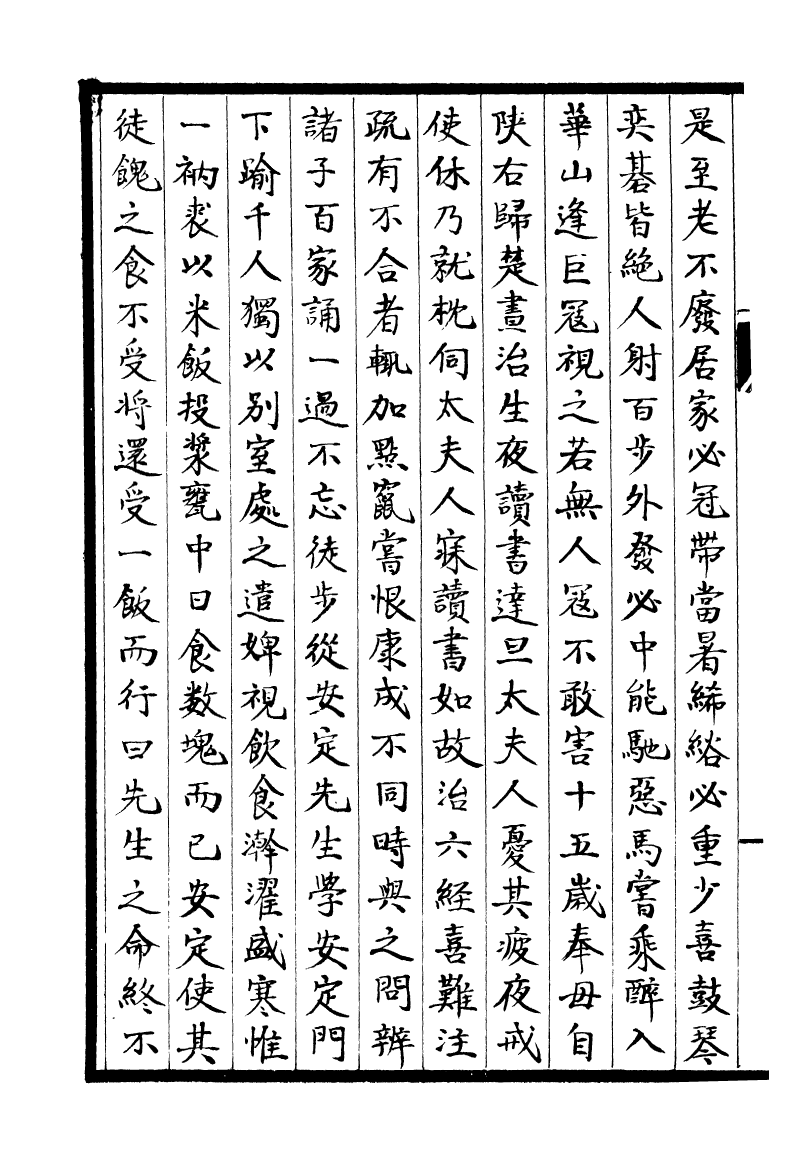 是至老不廢居家必冠帶當暑絺綌必重少喜鼓琴
奕碁皆絶人射百步外發必中能馳惡馬嘗乘醉入
華山逢巨冦視之若無人冦不敢害十五歲奉母自
陜右歸楚晝治生夜讀書達旦太夫人憂其疲夜戒
使休乃就枕伺太夫人寐讀書如故治六經喜難注
疏有不合者輒加點竄嘗恨康成不同時與之問辨
諸子百家誦一過不忘徒步從安定先生學安定門
下踰千人獨以別室處之遣婢視飲食澣濯盛寒惟
一衲裘以米飯投漿甕中日食數塊而已安定使其
徒餽之食不受將還受一飯而行曰先生之命終不